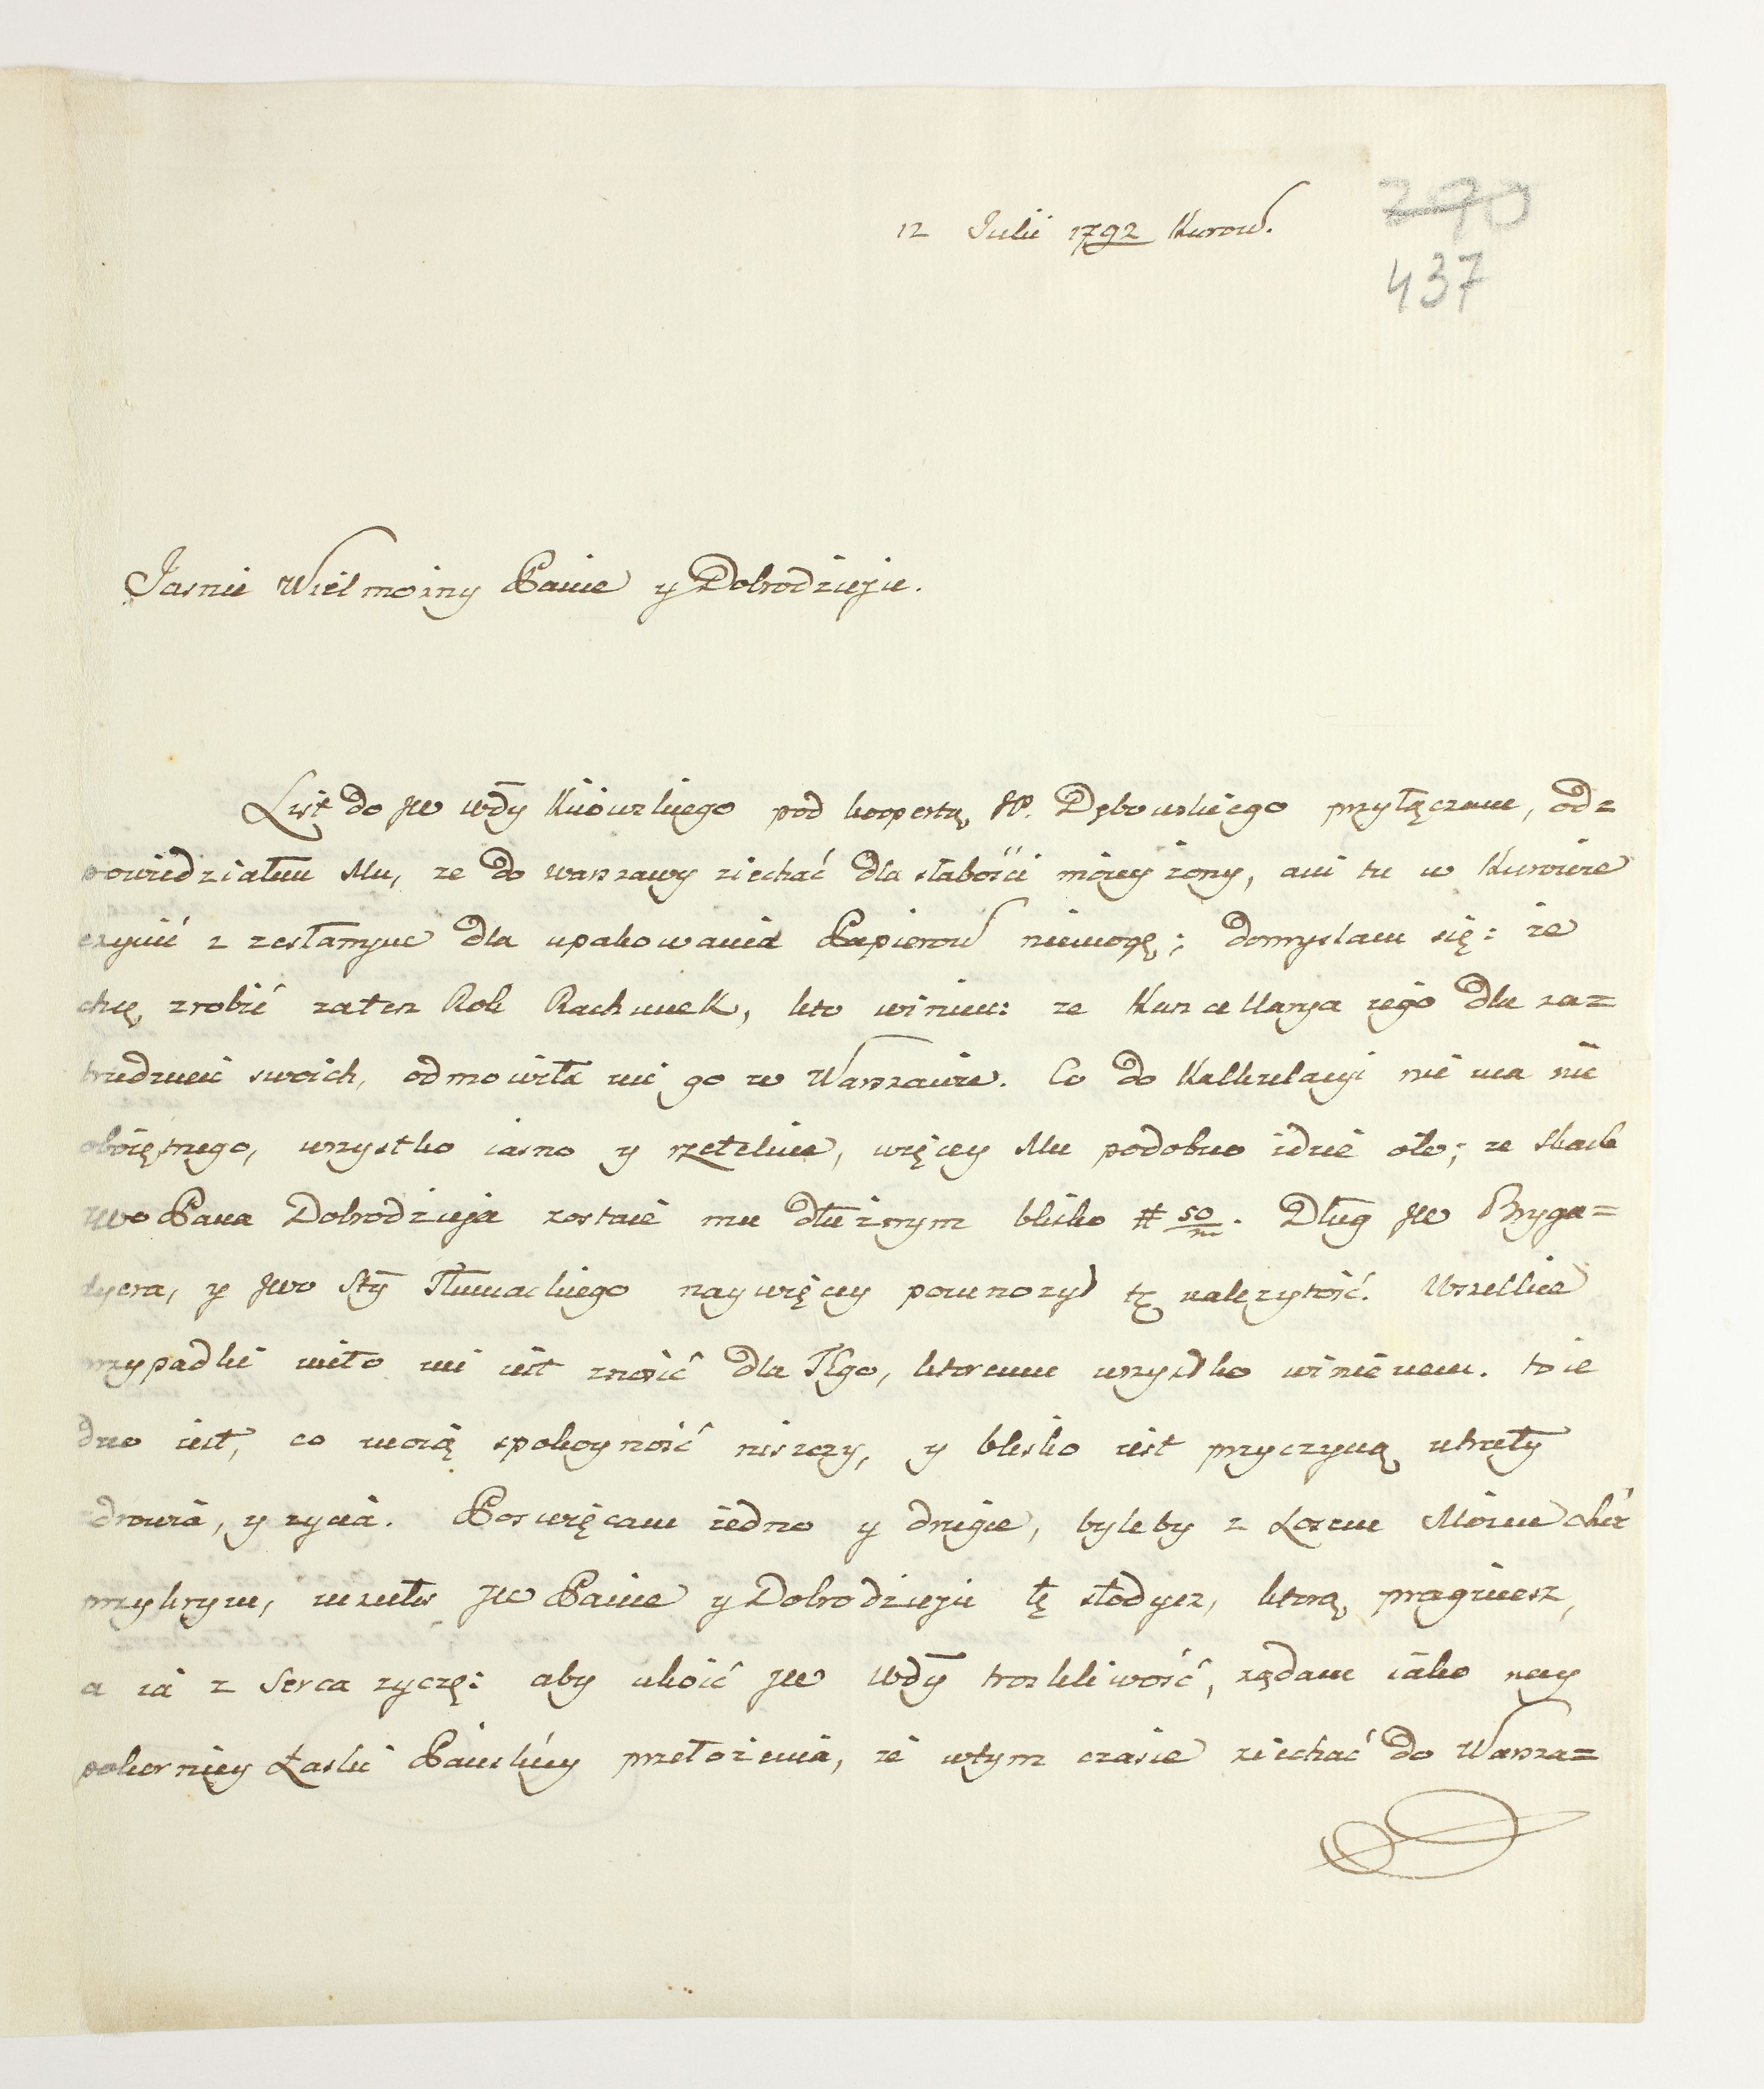 12 Julii 1792 Kurow.
279
437
Jasnie Wielmożny Panie y Dobrodzieju.
List do JW wdy Kiiowskiego pod kopertą JP. Dębowskiego przyłączam, od=
powiedziałem Mu, ze do warszawy ziechać dla słabości moiey żony, ani tu w Kurowie
czynić z zesłanym dla upakowania Papierow niemogę; domyslam się: że
chcę zrobić zaten Rok Rachunek, kto winien: ze Kancellarya iego dla za=
trudnień swoich, odmowiła mi go w Warszawie. Co do Kalkulacyi nie ma nic
oboiętnego, wszystko iasno y rzetelnie, więcey Mu podobno idzie oto; ze Skarb
JWo Pana Dobrodzieja zostaie mu dłużnym blisko # 50/m. Dług JW Bryga=
dyera, y JWo Sty Tłumackiego naywięcy pomnożył tę należytość. Wszelkie
przypadki miło mi iest znosić dla Tego, ktoremu wszystko winienem. to ie
dno iest, co moią spokoyność niszczy, y blisko iest przyczyną utraty
zdrowia, y zycia. Poswięcam iedno y drugie, byleby z Losem Moim choć
przykrym, miałeś JW Panie y Dobrodzieju tę słodycz, ktorą pragniesz,
a ia z Serca zyczę: aby ukoić JW Wdy troskliwość, ządam iako nay
pokorniey Łaski Pańskiey przełożenia, że wtym czasie ziechać do Warsza=